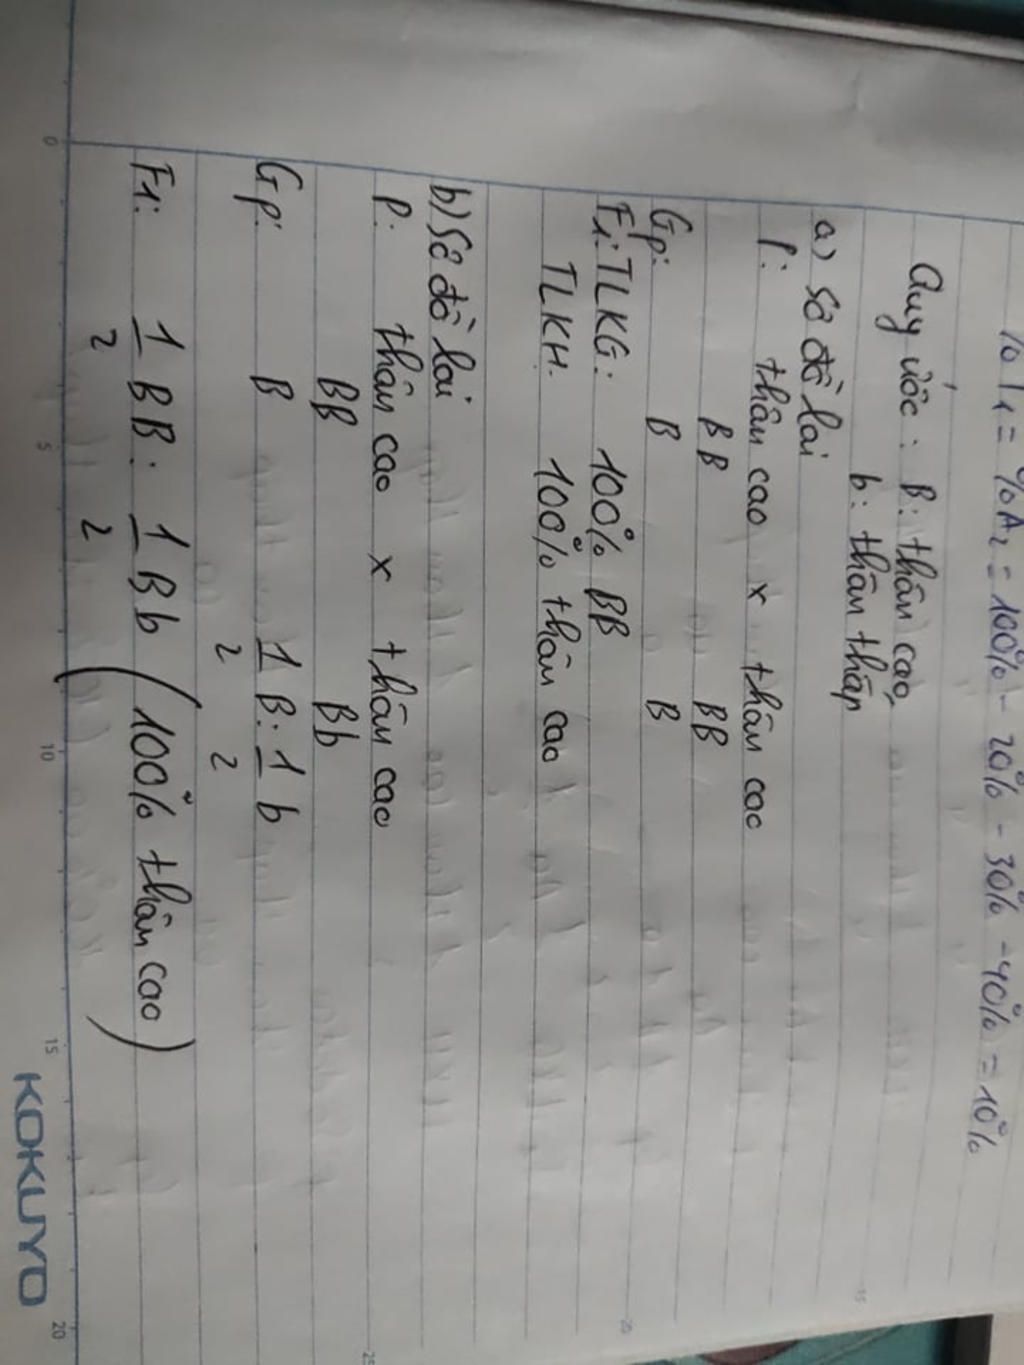 % T1 = %A2 = 100% - 20% - 30% - 40% = 10%
Quy ước: B: thân cao,
b: thân thấp
a) Sơ đồ lai
P: thân cao x thân cao
BB BB
Gp: B B
F1: TLKG: 100% BB
TLKH: 100% thân cao
b) Sơ đồ lai
P: thân cao x thân cao
BB Bb
Gp: B 1/2 B : 1/2 b
F1: 1/2 BB : 1/2 Bb (100% thân cao)
0 5 10 15 20
15
20
25
KOKUYO